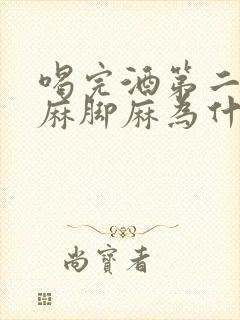 喝完酒第二
麻脚麻為什
尚寶者